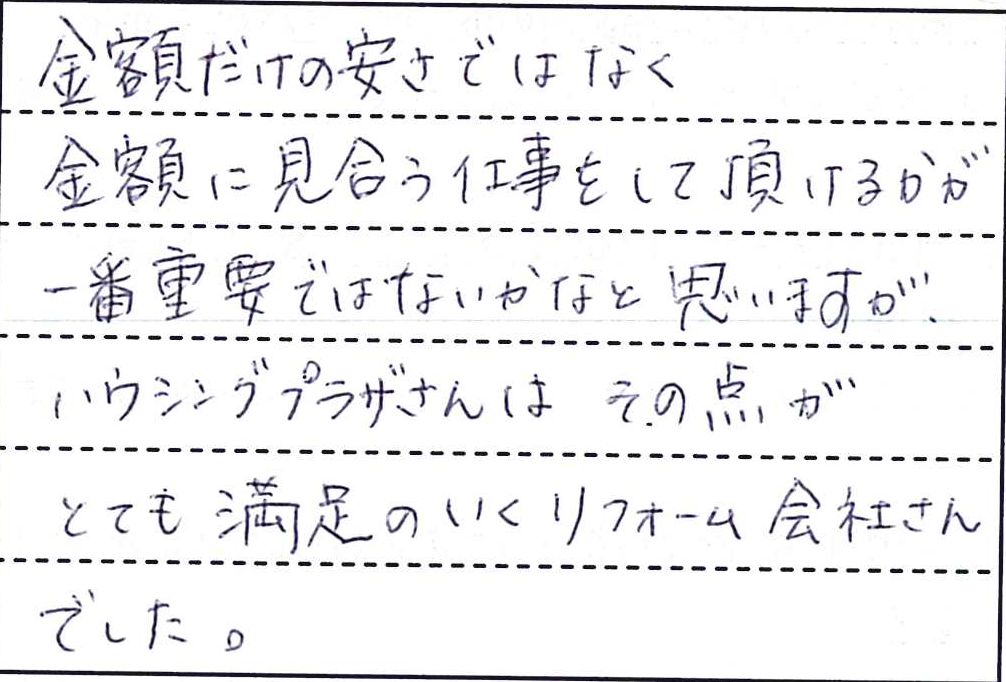 金額だけの安さではなく
金額に見合う仕事をして頂けるかが
一番重要ではないかなと思いますが、
ハウシングプラザさんは その点が
とても満足のいくリフォーム会社さん
でした。